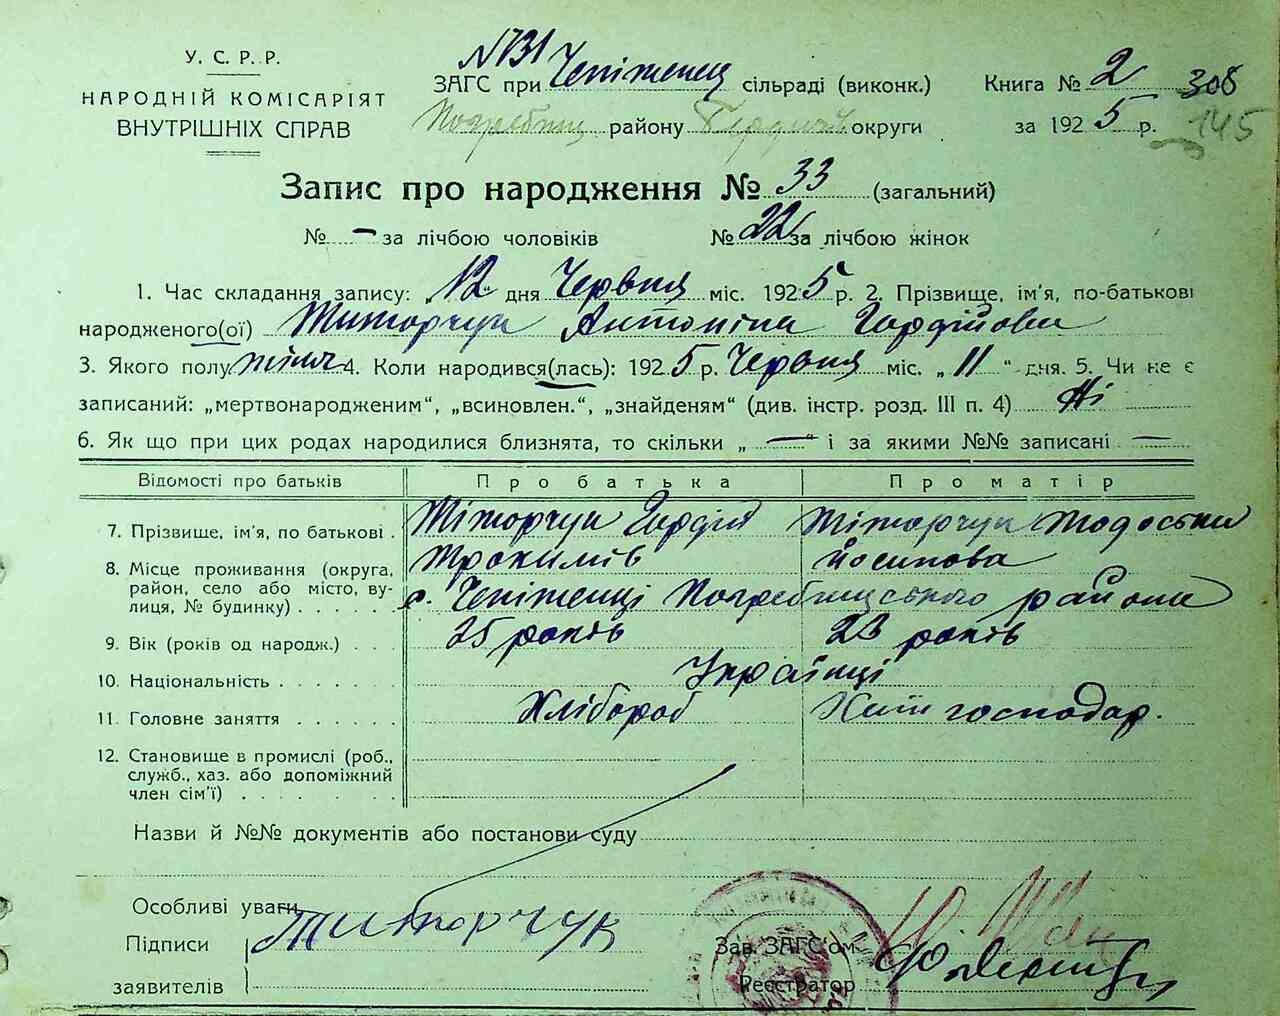 У. С. Р. Р.
НАРОДНІЙ КОМІСАРІЯТ
ВНУТРІШНІХ СПРАВ
№731
ЗАГС при Чепіженец сільраді (виконк.)
Погребищ району Бердич округи
Книга № 2 308
за 1925 р. 145
Запис про народження № 33 (загальний)
№ — за лічбою чоловіків № 22 за лічбою жінок
1. Час складання запису: „12 дня Червня міс. 1925 р. 2. Прізвище, ім'я, по-батькові
народженого(ої) Титорчук Антоніна Гордійовна
3. Якого полу жіноч 4. Коли народився(лась): 1925 р. Червня міс. „11“ дня. 5. Чи не є
записаний: „мертвонародженим“, „всиновлен.“, „знайденям“ (див. інстр. розд. III п. 4) Ні
6. Як що при цих родах народилися близнята, то скільки „ — “ і за якими №№ записані —
Відомості про батьків Про батька Про матір
7. Прізвище, ім'я, по батькові . Тіторчук Гордій Тіторчук Тодоська
Трохимів Йосипова
8. Місце проживання (округа,
район, село або місто, ву-
лиця, № будинку) . . . . . с. Чепіженці Погребищського району
9. Вік (років од народж.) . . . 25 років 23 років
10. Національність . . . . . . . Українці
11. Головне заняття . . . . . . Хлібороб Хатн господар.
12. Становище в промислі (роб.,
служб., хаз. або допоміжний
член сім'ї) . . . . . . . . . .
Назви й №№ документів або постанови суду
Особливі уваги
Підписи Титорчук
заявителів
Зав. ЗАГС'ом
Реєстратор